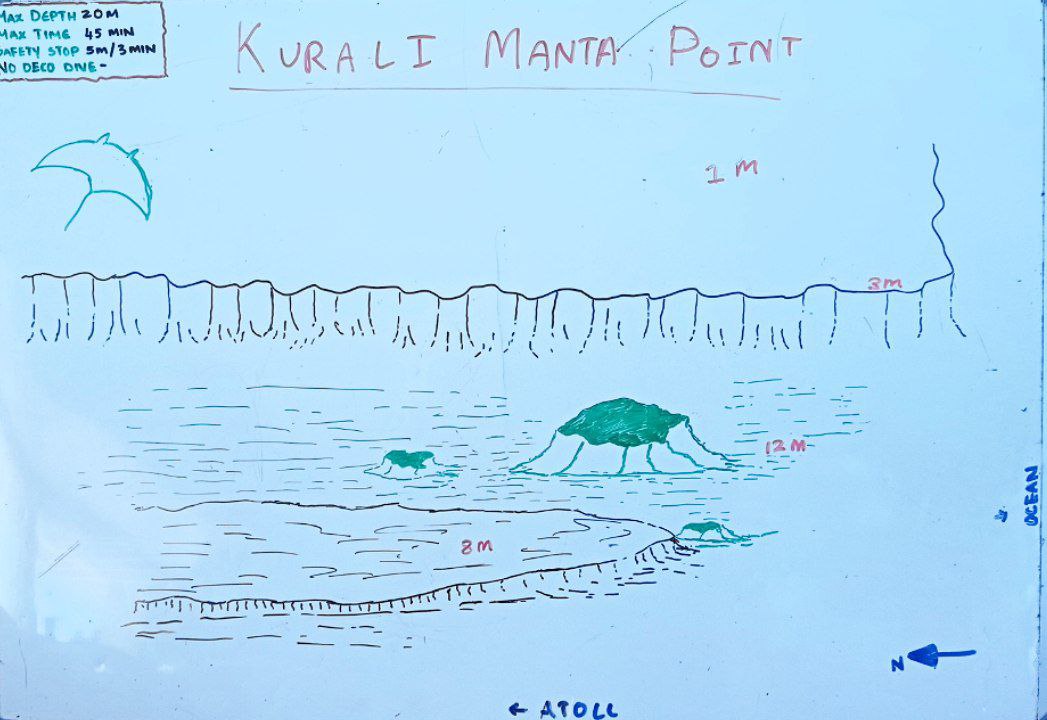 MAX DEPTH 20M
MAX TIME 45 MIN
SAFETY STOP 5m/3MIN
NO DECO DIVE-
KURALI MANTA POINT
1 M
3m
12M
8M
OCEAN
N
← ATOLL